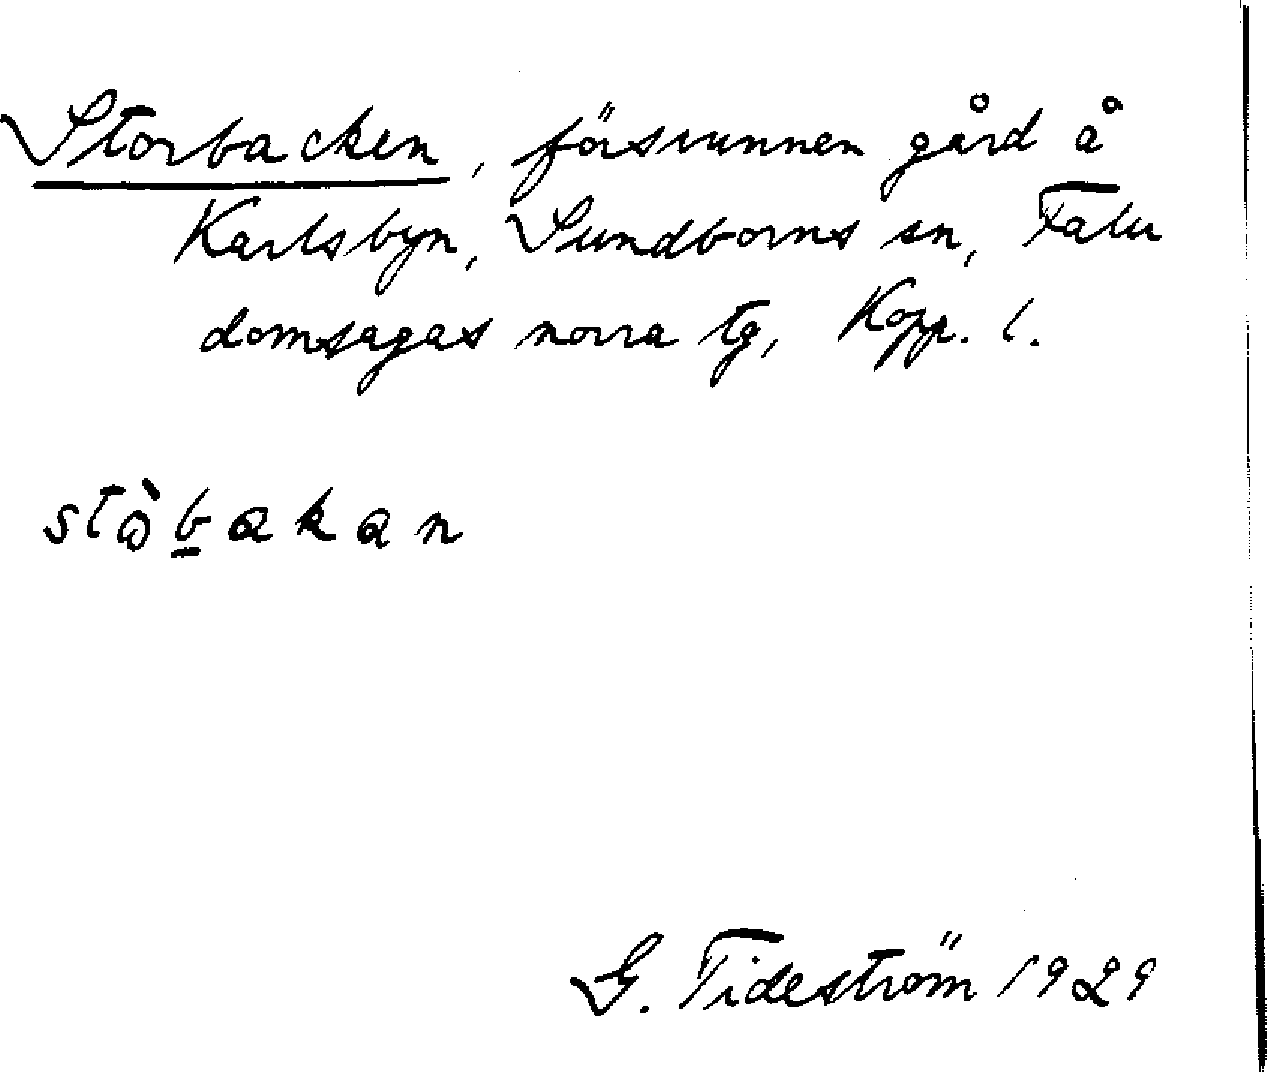 Storbacken, försvunnen gård å
Karlsbyn, Sundborns sn, Falu
domsagas norra tg, Kopp. l.
stὼbakan
G. Tideström 1929